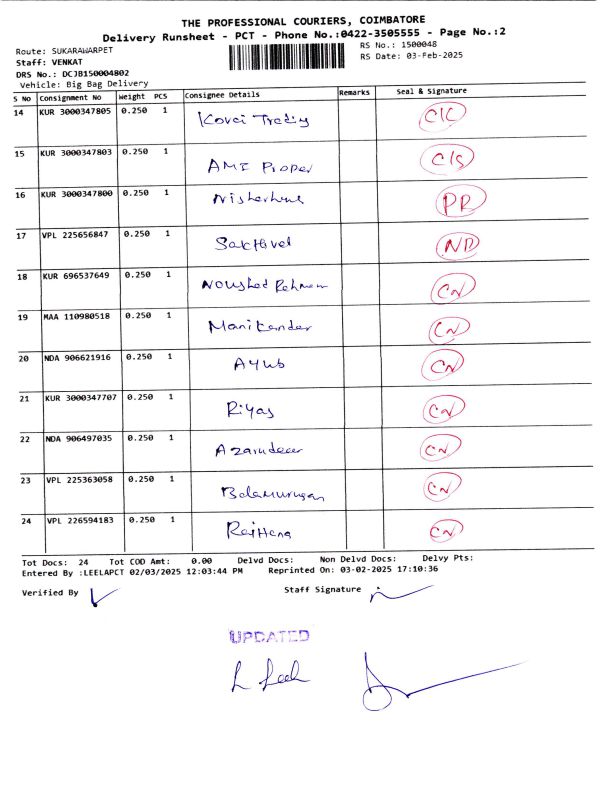 THE PROFESSIONAL COURIERS, COIMBATORE
Delivery Runsheet - PCT - Phone No.:0422-3505555 - Page No.:2
Route: SUKARAWARPET RS No.: 1500048
Staff: VENKAT RS Date: 03-Feb-2025
DRS No.: DCJB150004802
Vehicle: Big Bag Delivery
S No Consignment No Weight PCS Consignee Details Remarks Seal & Signature
14 KUR 3000347805 0.250 1 Kovai Trading C/C
15 KUR 3000347803 0.250 1 AMI Proper C/S
16 KUR 3000347800 0.250 1 PR
17 VPL 225656847 0.250 1 Sakthivel ND
18 KUR 696537649 0.250 1 Noushad Rehman CN
19 MAA 110980518 0.250 1 Manikandan CN
20 NDA 906621916 0.250 1 Ayub CN
21 KUR 3000347707 0.250 1 Riyas CN
22 NDA 906497035 0.250 1 CN
23 VPL 225363058 0.250 1 Balamurugan CN
24 VPL 226594183 0.250 1 Raihana CN
Tot Docs: 24 Tot COD Amt: 0.00 Delvd Docs: Non Delvd Docs: Delvy Pts:
Entered By :LEELAPCT 02/03/2025 12:03:44 PM Reprinted On: 03-02-2025 17:10:36
Verified By Staff Signature
UPDATED